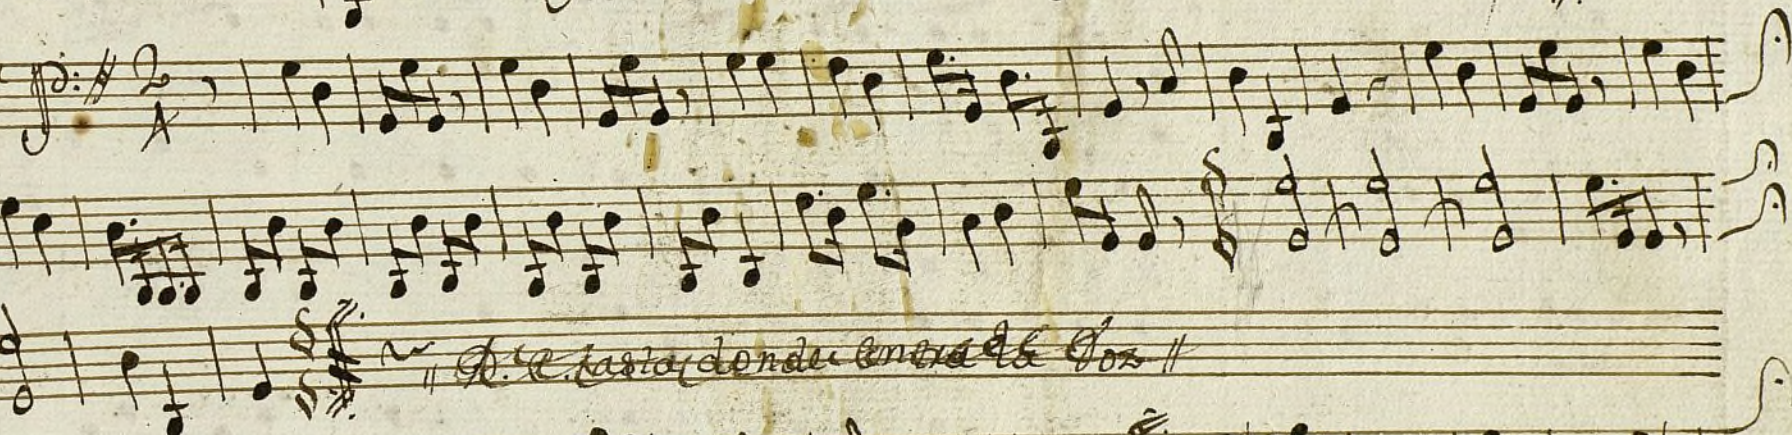 2
4
D. C. hasta donde entra la Voz